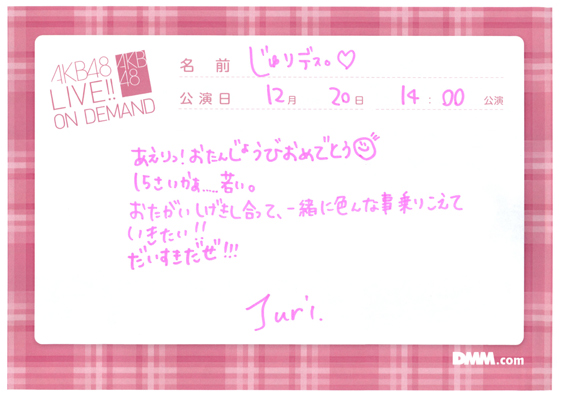 AKB48
LIVE!!
ON DEMAND
AKB
48
名 前 じゅりデス。♡
公演日 12月 20日 14:00 公演
あえりっ!おたんじょうびおめでとう
15さいかぁ……若い。
おたがいしげきし合って、一緒に色んな事乗りこえて
いきたい!!
だいすきだぜ!!!
Juri.
DMM.com